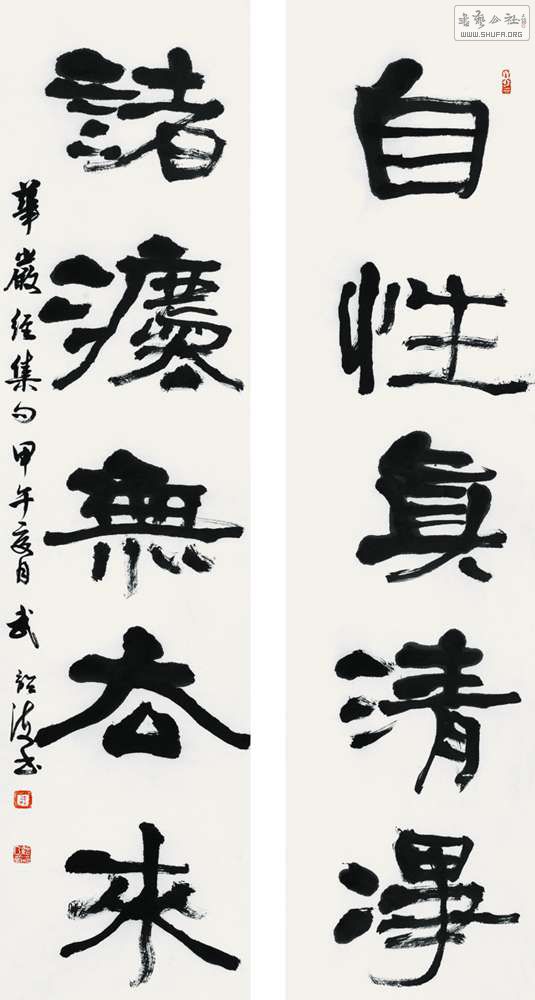 書藝公社
WWW.SHUFA.ORG
自性真清淨
諸灋無去來
華嚴經集句甲午夏月武韶波书